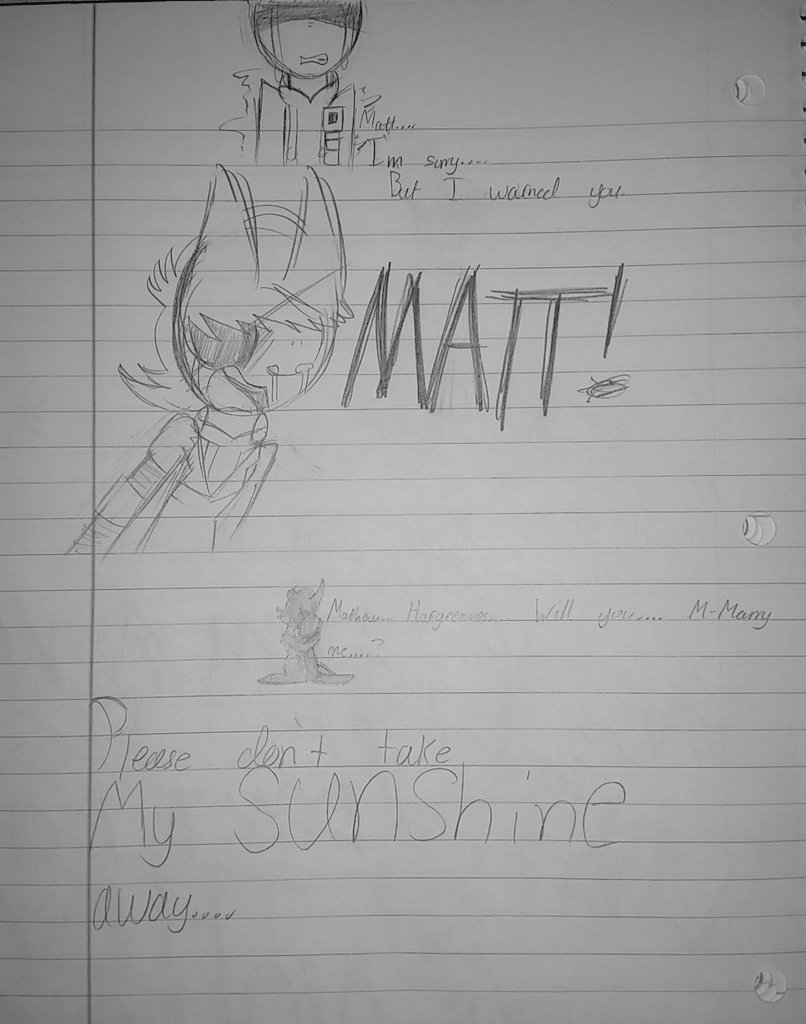 Matt....
I'm sorry....
But I warned you
MATT!
Mathew... Hargreaves... Will you.... M-Marry
me....?
Please don't take
My Sunshine
away....